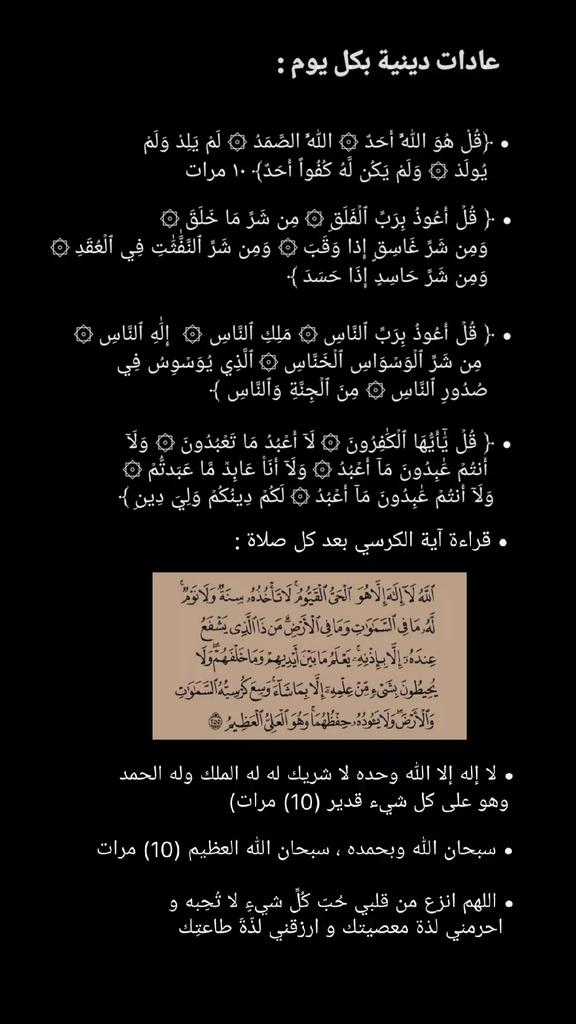 عادات دينية بكل يوم :
• ﴿قُلْ هُوَ اللَّهُ أَحَدٌ ۞ اللَّهُ الصَّمَدُ ۞ لَمْ يَلِدْ وَلَمْ
يُولَدْ ۞ وَلَمْ يَكُن لَّهُ كُفُواً أَحَدٌ﴾ ١٠ مرات
• ﴿ قُلْ أَعُوذُ بِرَبِّ ٱلْفَلَقِ ۞ مِن شَرِّ مَا خَلَقَ ۞
وَمِن شَرِّ غَاسِقٍ إِذا وَقَبَ ۞ وَمِن شَرِّ ٱلنَّفَّٰثَٰتِ فِي ٱلْعُقَدِ ۞
وَمِن شَرِّ حَاسِدٍ إِذَا حَسَدَ ﴾
• ﴿ قُلْ أَعُوذُ بِرَبِّ ٱلنَّاسِ ۞ مَلِكِ ٱلنَّاسِ ۞ إِلَٰهِ ٱلنَّاسِ ۞
مِن شَرِّ ٱلْوَسْوَاسِ ٱلْخَنَّاسِ ۞ ٱلَّذِي يُوَسْوِسُ فِي
صُدُورِ ٱلنَّاسِ ۞ مِنَ ٱلْجِنَّةِ وَٱلنَّاسِ ﴾
• ﴿ قُلْ يَٰٓأَيُّهَا ٱلْكَٰفِرُونَ ۞ لَآ أَعْبُدُ مَا تَعْبُدُونَ ۞ وَلَآ
أَنتُمْ عَٰبِدُونَ مَآ أَعْبُدُ ۞ وَلَآ أَنَا۠ عَابِدٌ مَّا عَبَدتُّمْ ۞
وَلَآ أَنتُمْ عَٰبِدُونَ مَآ أَعْبُدُ ۞ لَكُمْ دِينُكُمْ وَلِيَ دِينِ ﴾
• قراءة آية الكرسي بعد كل صلاة :
ٱللَّهُ لَآ إِلَٰهَ إِلَّا هُوَ ٱلْحَىُّ ٱلْقَيُّومُ ۚ لَا تَأْخُذُهُۥ سِنَةٌ وَلَا نَوْمٌ ۚ
لَّهُۥ مَا فِى ٱلسَّمَٰوَٰتِ وَمَا فِى ٱلْأَرْضِ ۗ مَن ذَا ٱلَّذِى يَشْفَعُ
عِندَهُۥٓ إِلَّا بِإِذْنِهِۦ ۚ يَعْلَمُ مَا بَيْنَ أَيْدِيهِمْ وَمَا خَلْفَهُمْ ۖ وَلَا
يُحِيطُونَ بِشَىْءٍ مِّنْ عِلْمِهِۦٓ إِلَّا بِمَا شَآءَ ۚ وَسِعَ كُرْسِيُّهُ ٱلسَّمَٰوَٰتِ
وَٱلْأَرْضَ ۖ وَلَا يَـُٔودُهُۥ حِفْظُهُمَا ۚ وَهُوَ ٱلْعَلِىُّ ٱلْعَظِيمُ ٢٥٥
• لا إله إلا الله وحده لا شريك له له الملك وله الحمد
وهو على كل شيء قدير (10) مرات)
• سبحان الله وبحمده ، سبحان الله العظيم (10) مرات
• اللهم انزع من قلبي حُبّ كُلِّ شيءٍ لا تُحِبه و
احرمني لذة معصيتك و ارزقني لذّة طاعتِك